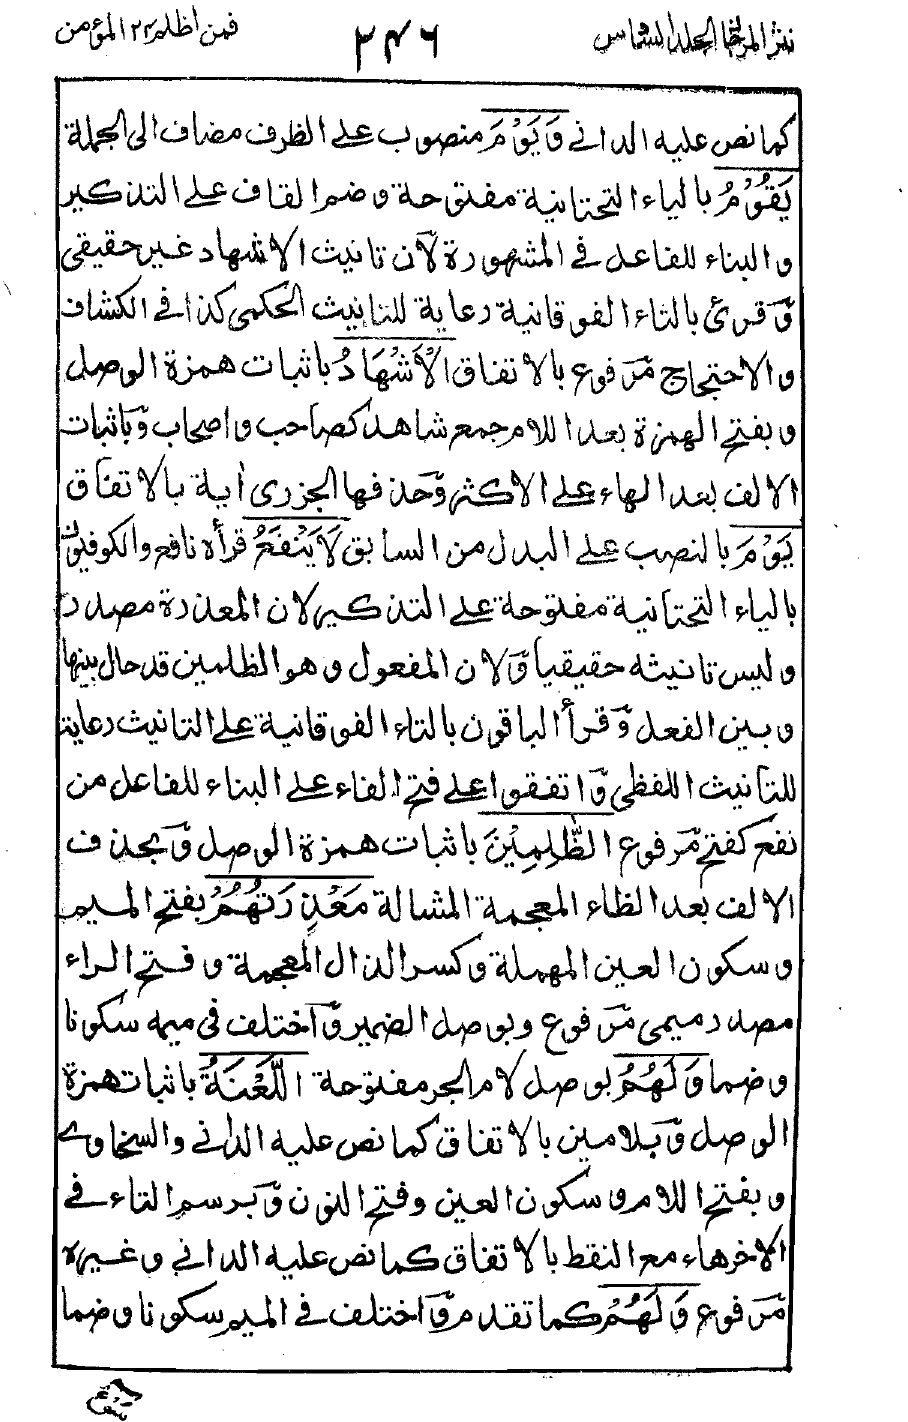 نثر المرجان الجلد السادس ٢٤٦ فمن اظلم ٢٤ المؤمن
كما نص عليه الدانى وَيَوْمَ منصوب على الظرف مضاف الى الجملة
يَقُوْمُ بالياء التحتانية مفتوحة وضم القاف على التذكير
والبناء للفاعل فى المشهورة لان تانيث الاشهاد غير حقيقى
وقرئ بالتاء الفوقانية رعاية للتانيث الحكمى كذا فى الكشاف
والاحتجاج مرفوع بالاتفاق الْاَشْهَادُ باثبات همزة الوصل
وبفتح الهمزة بعد اللام جمع شاهد كصاحب واصحاب وباثبات
الالف بعد الهاء على الاكثر وحذفها الجزرى اية بالاتفاق
يَوْمَ بالنصب على البدل من السابق لَا يَنْفَعُ قرأه نافع والكوفيون
بالياء التحتانية مفتوحة على التذكير لان المعذرة مصدر
وليس تانيثه حقيقيا ولان المفعول وهو الظلمين قد حال بينها
وبين الفعل وقرأ الباقون بالتاء الفوقانية على التانيث رعاية
للتانيث اللفظى واتفقوا على فتح الفاء على البناء للفاعل من
نفع كفتح مرفوع الظّٰلِمِيْنَ باثبات همزة الوصل وبحذف
الالف بعد الظاء المعجمة المشالة مَعْذِرَتُهُمْ بفتح الميم
وسكون العين المهملة وكسر الذال المعجمة وفتح الراء
مصدر ميمى مرفوع وبوصل الضمير واختلف فى ميمه سكونا
وضما وَلَهُمُ بوصل لام الجر مفتوحة اللَّعْنَةُ باثبات همزة
الوصل وبلامين بالاتفاق كما نص عليه الدانى والسخاوى
وبفتح اللام وسكون العين وفتح النون وبرسم التاء فى
الاخرهاء مع النقط بالاتفاق كما نص عليه الدانى وغيره
مرفوع وَلَهُمْ كما تقدم واختلف فى الميم سكونا وضما